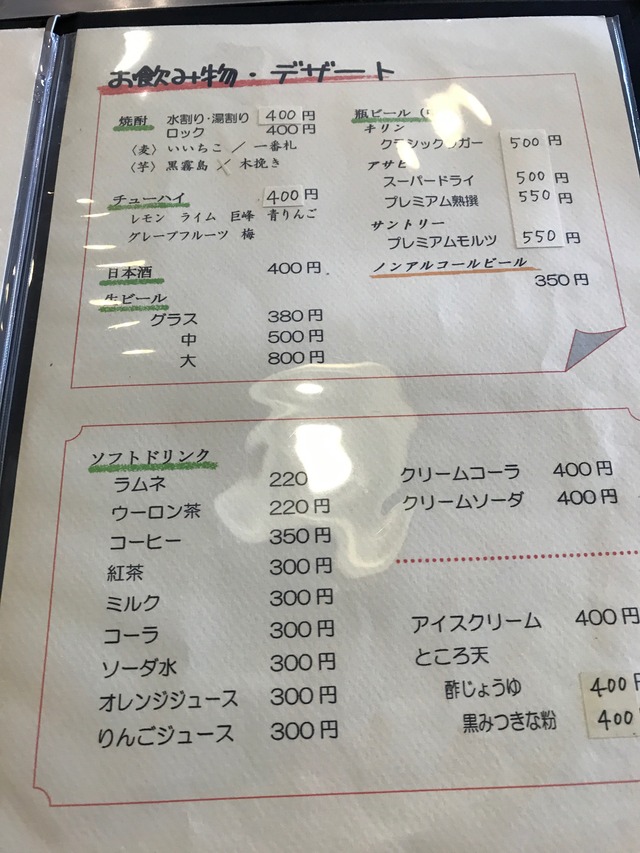 お飲み物・デザート
焼酎 水割り・湯割り 400円
ロック 400円
〈麦〉いいちこ／一番札
〈芋〉黒霧島／木挽き
チューハイ 400円
レモン ライム 巨峰 青りんご
グレープフルーツ 梅
日本酒 400円
生ビール
グラス 380円
中 500円
大 800円
瓶ビール（
キリン
クラシックラガー 500円
アサヒ
スーパードライ 500円
プレミアム熟撰 550円
サントリー
プレミアムモルツ 550円
ノンアルコールビール
350円
ソフトドリンク
ラムネ 220
ウーロン茶 220円
コーヒー 350円
紅茶 300円
ミルク 300円
コーラ 300円
ソーダ水 300円
オレンジジュース 300円
りんごジュース 300円
クリームコーラ 400円
クリームソーダ 400円
アイスクリーム 400円
ところ天
酢じょうゆ 400円
黒みつきな粉 400